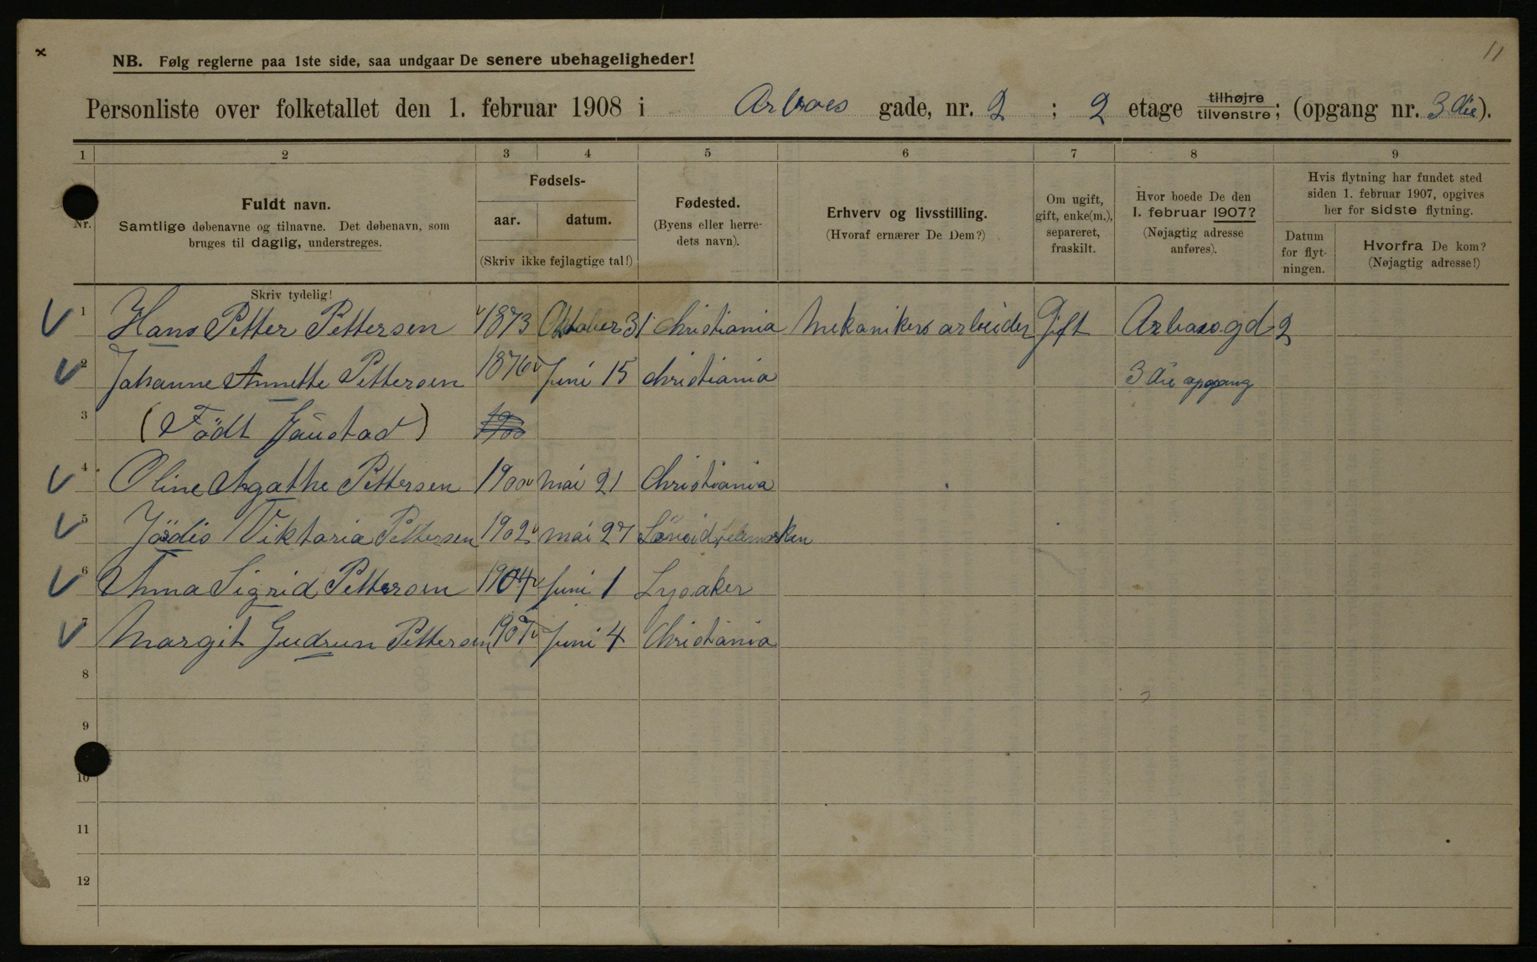 11
NB. Følg reglerne paa 1ste side, saa undgaar De senere ubehageligheder!
Personliste over folketallet den 1. februar 1908 i Arboes gade, nr. 2 ; 2 etage tilhøjre tilvenstre; (opgang nr. 3die).
1 2 3 4 5 6 7 8 9
Nr.
Fuldt navn.
Samtlige døbenavne og tilnavne. Det døbenavn, som
bruges til daglig, understreges.
Skriv tydelig!
Fødsels-
aar. datum.
(Skriv ikke fejlagtige tal!)
Fødested.
(Byens eller herre-
dets navn).
Erhverv og livsstilling.
(Hvoraf ernærer De Dem?)
Om ugift,
gift, enke(m.),
separeret,
fraskilt.
Hvor boede De den
1. februar 1907?
(Nøjagtig adresse
anføres).
Hvis flytning har fundet sted
siden 1. februar 1907, opgives
her for sidste flytning.
Datum
for flyt-
ningen.
Hvorfra De kom?
(Nøjagtig adresse!)
1 Hans Petter Pettersen 1873 Oktober 31 Christiania Mekanikers arbeider Gift Arboesgd 2
2 Johanne Annette Pettersen 1876 Juni 15 Christiania 3die opgang
3 (Födt Gaustad) 1900
4 Oline Agathe Pettersen 1900 Mai 21 Christiania
5 Jördis Viktoria Pettersen 1902 Mai 27
6 Anna Sigrid Pettersen 1904 Juni 1 Lysaker
7 Margit Gudrun Pettersen 1907 Juni 4 Christiania
8
9
10
11
12